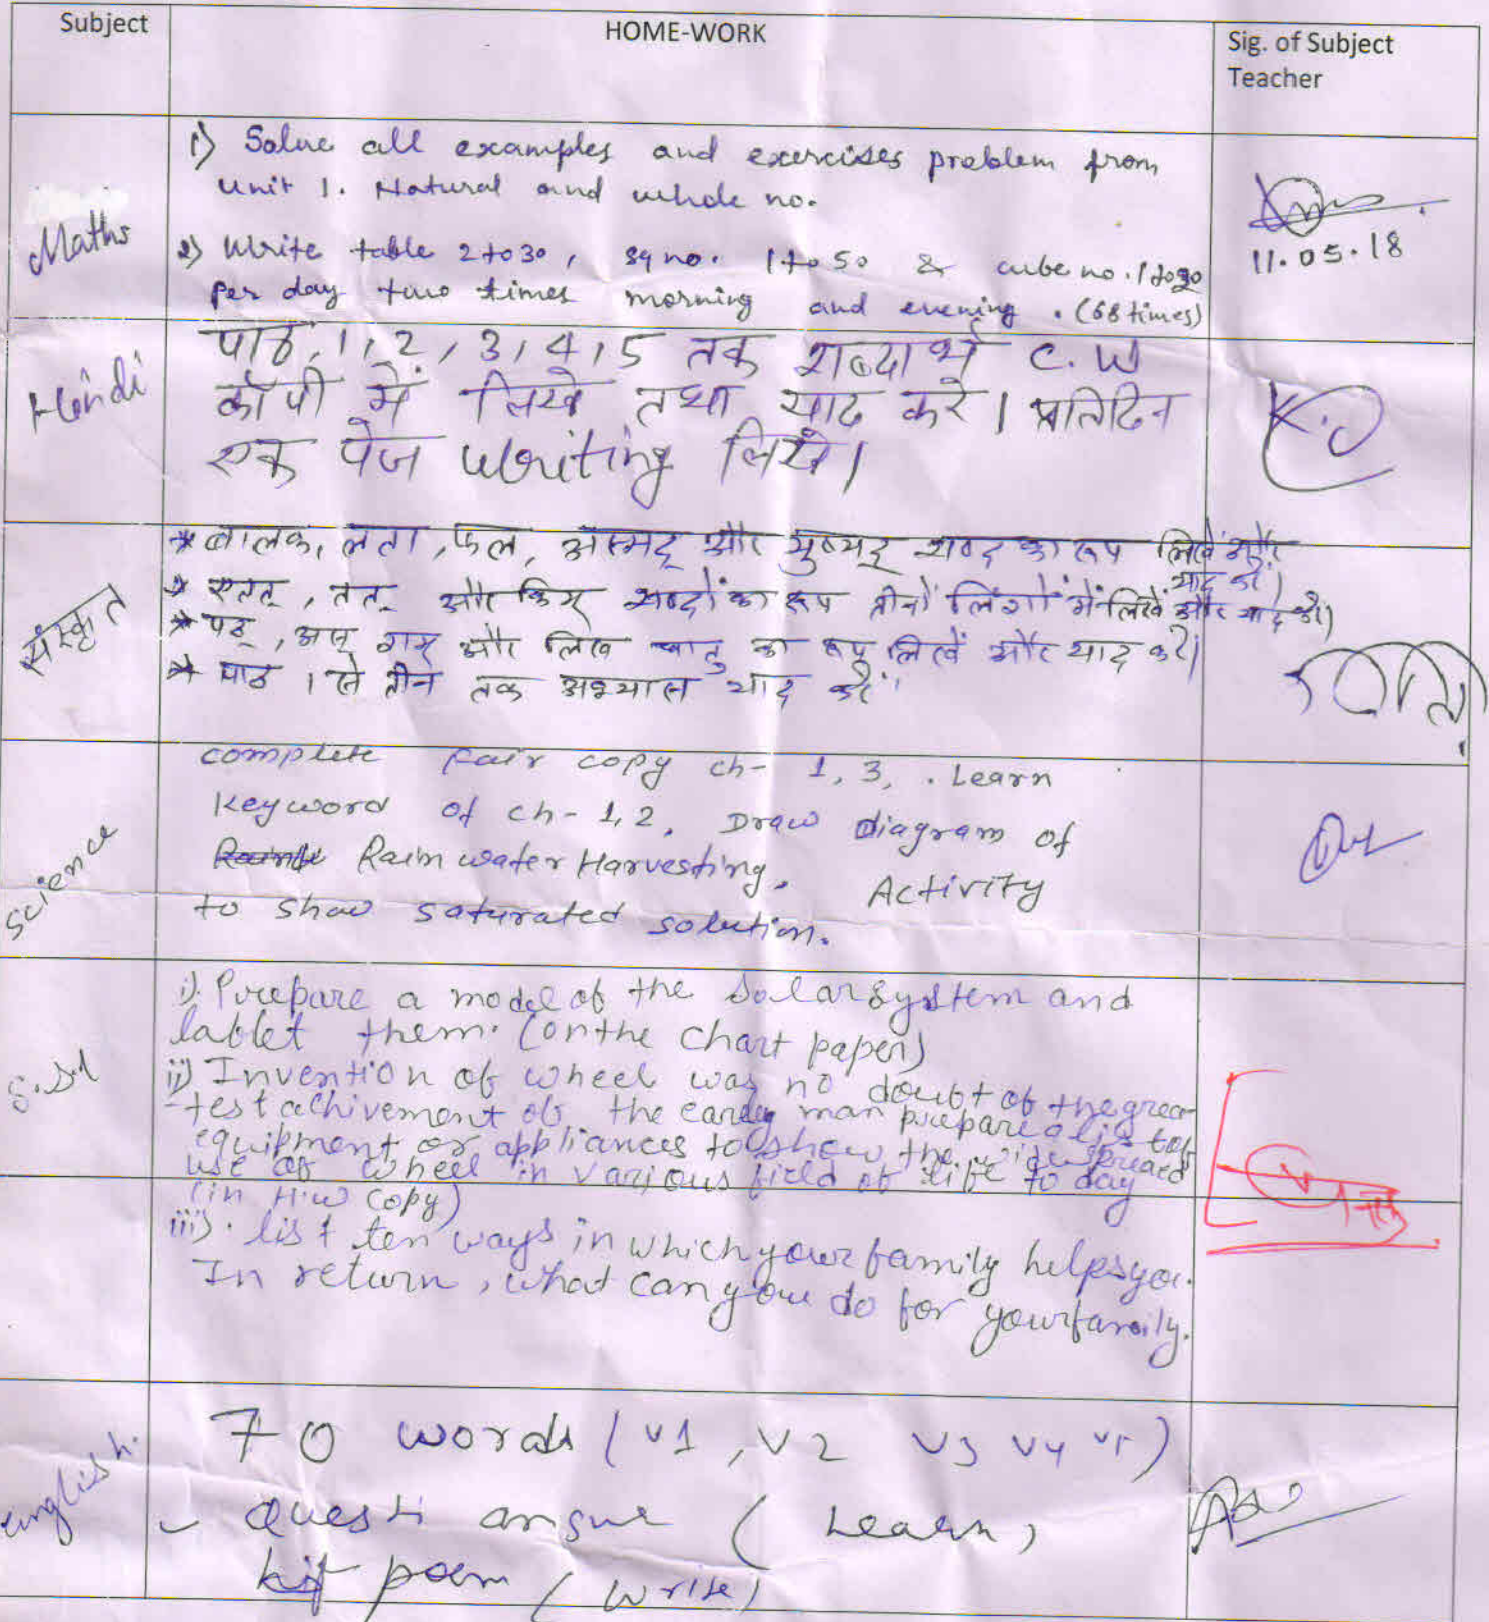 Subject
HOME-WORK
Sig. of Subject
Teacher
Maths
1) Solve all examples and exercises problem from
unit 1. Natural and whole no.
2) Write table 2 to 30, sq no. 1 to 50 & cube no. 1 to 30
per day two times morning and evening. (68 times)
11.05.18
Hindi
पाठ, 1, 2, 3, 4, 5 तक शब्दार्थ C.W
कॉपी में लिखे तथा याद करे। प्रतिदिन
एक पेज writing लिखे।
संस्कृत
* बालक, लता, फल, अस्मद् और युष्मद् शब्द का रूप लिखें और
याद करें।
* एतत्, तत् और किम् शब्दों का रूप तीनों लिंगों में लिखें और याद करें।
* पठ्, अस् गम् और लिख धातु का रूप लिखें और याद करें।
* पाठ 1 से तीन तक अभ्यास याद करें।
Science
complete fair copy ch- 1, 3, . Learn
Keyword of ch- 1, 2, Draw diagram of
Rain water Harvesting. Activity
to show saturated solution.
S.St
i) Prepare a model of the solar system and
lablet them. (on the chart paper)
ii) Invention of wheel was no doubt of the grea-
test achivement of the early man prepare a list of
equipment or appliances to show the widespread
use of wheel in various field of life to day
(in H.W copy)
iii). list ten ways in which your family helps you.
In return, what can you do for your family.
English.
70 words (v1, v2 v3 v4 v5)
Questi answe (Learn)
poem (write)